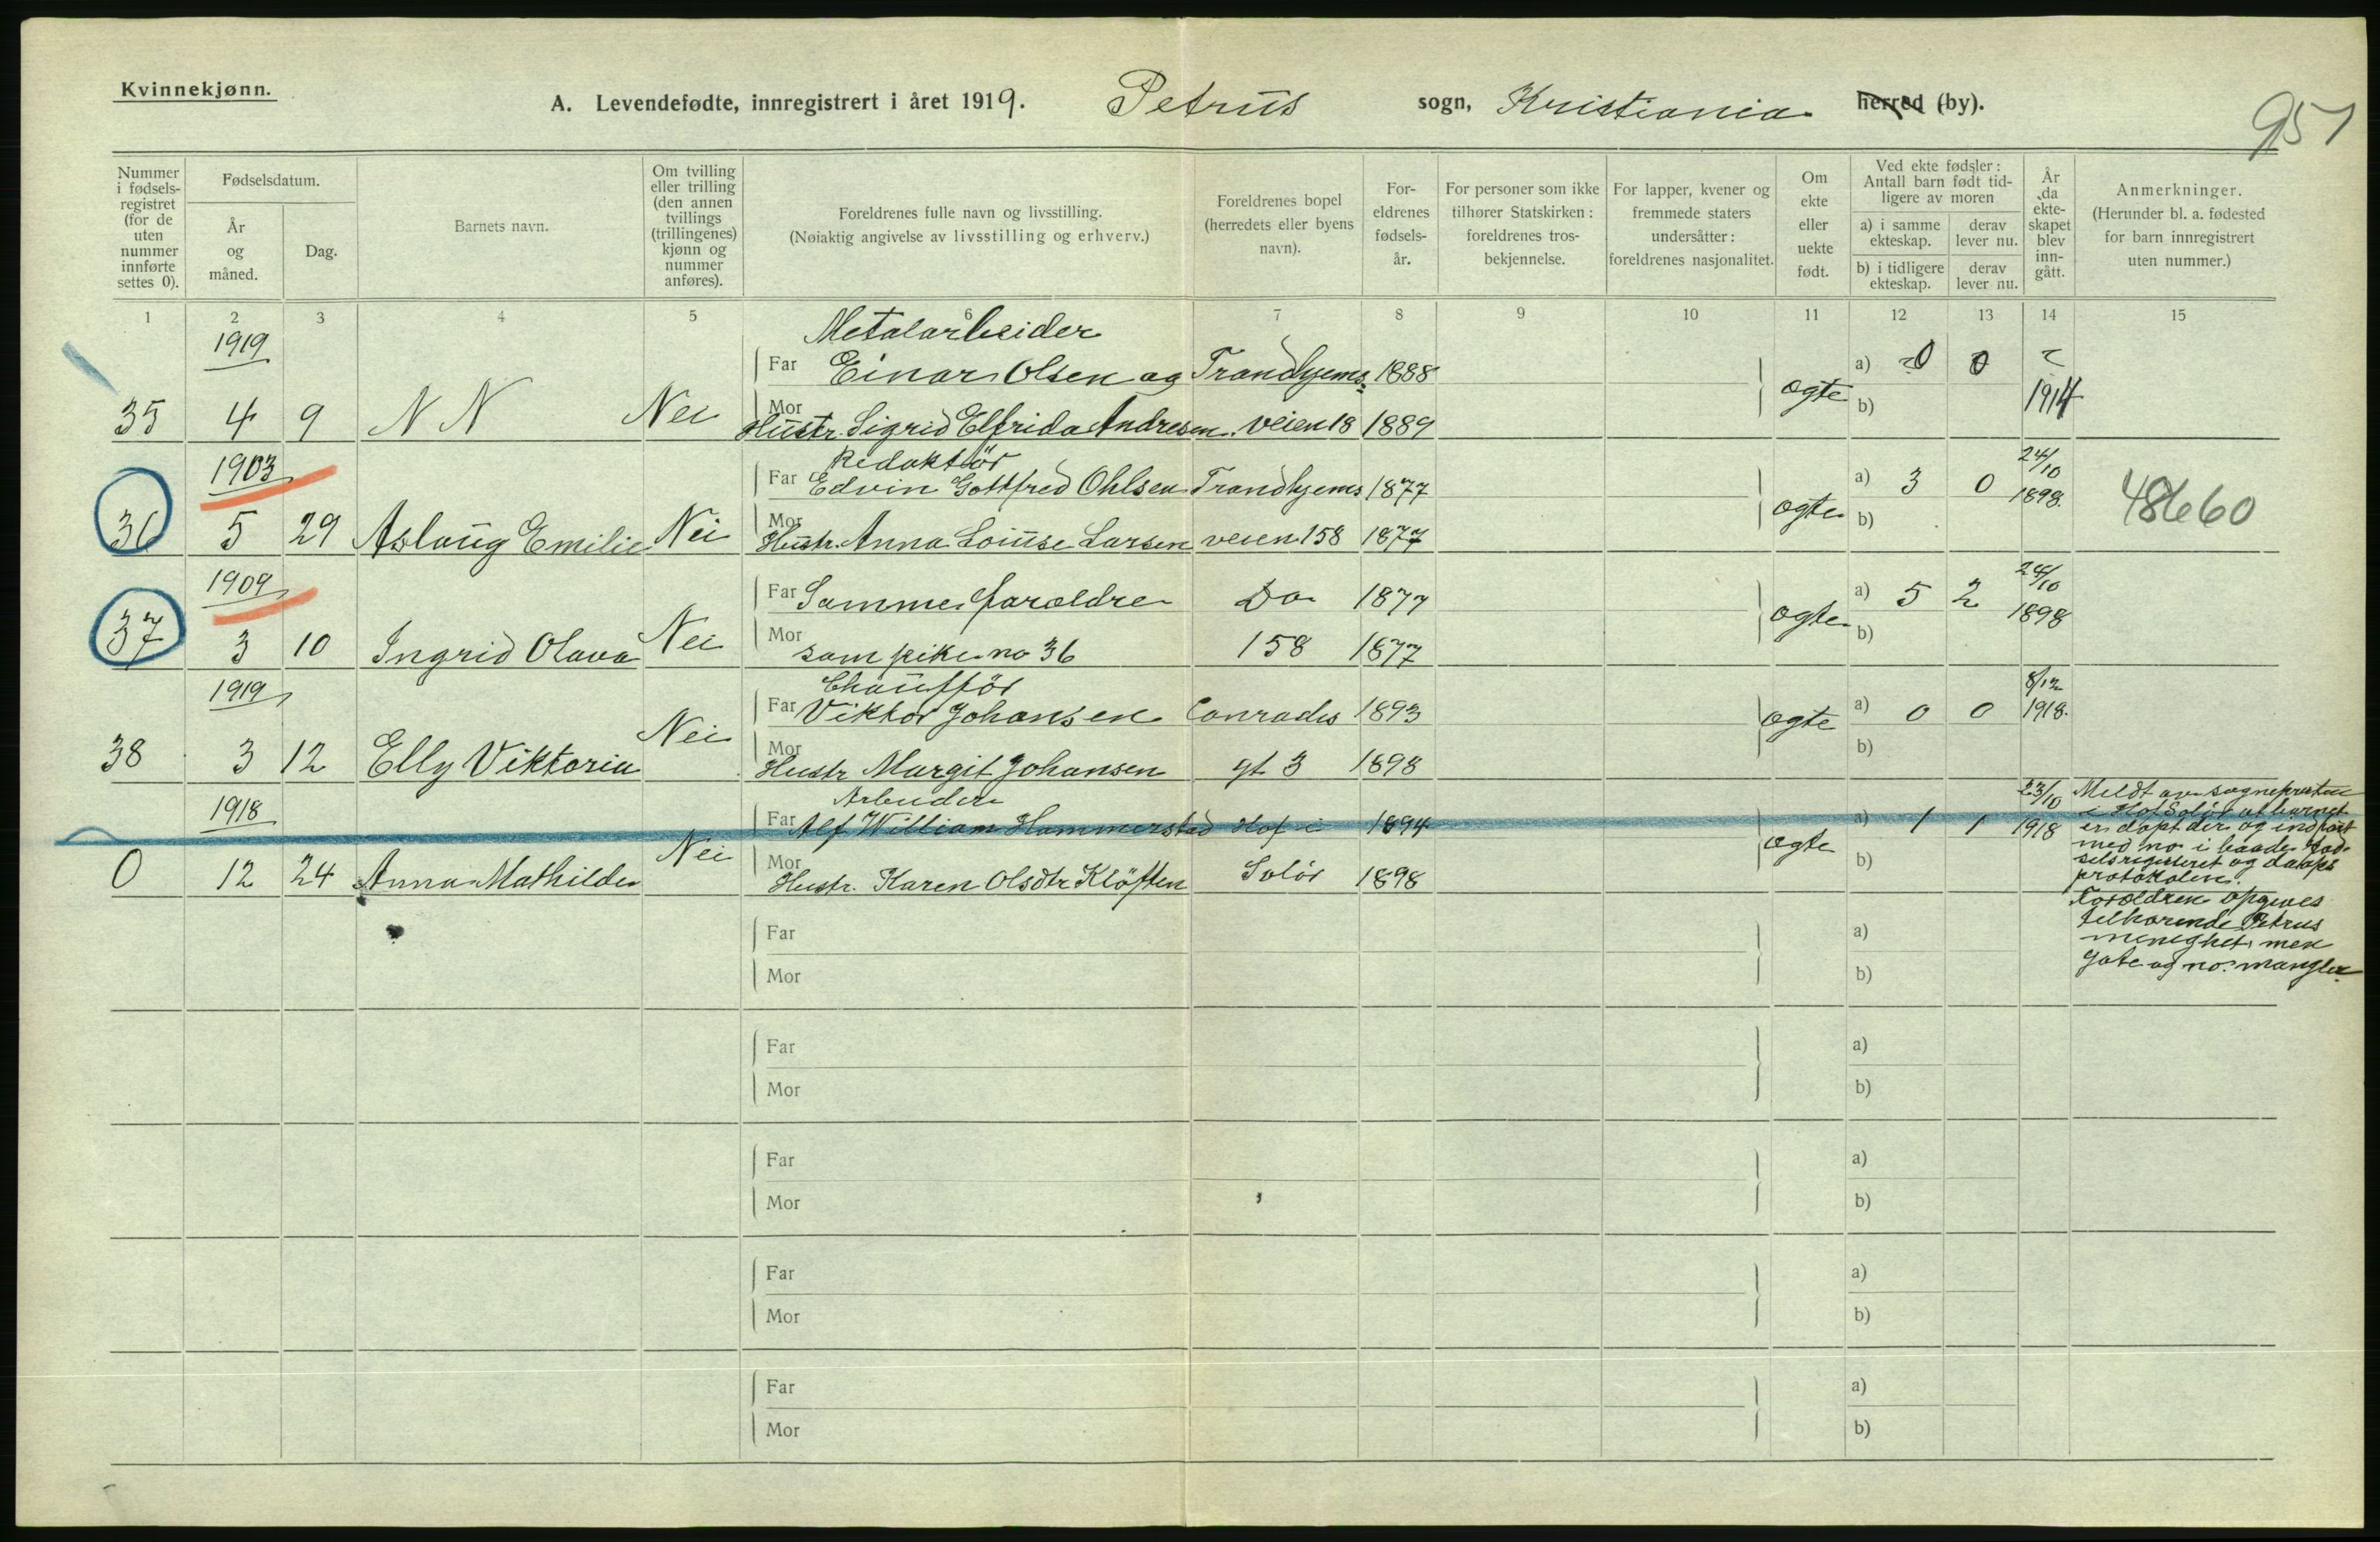 Kvinnekjønn.
A. Levendefødte, innregistrert i året 1919. Petrus sogn, Kristiania herred (by).
951
Nummer i fødsels-registret (for de uten nummer innførte settes 0).
Fødselsdatum.
År og måned.
Dag.
Barnets navn.
Om tvilling eller trilling (den annen tvillings (trillingenes) kjønn og nummer anføres).
Foreldrenes fulle navn og livsstilling.
(Nøiaktig angivelse av livsstilling og erhverv.)
Foreldrenes bopel (herredets eller byens navn).
For-eldrenes fødsels-år.
For personer som ikke tilhører Statskirken: foreldrenes tros-bekjennelse.
For lapper, kvener og fremmede staters undersåtter: foreldrenes nasjonalitet.
Om ekte eller uekte født.
Ved ekte fødsler: Antall barn født tid-ligere av moren
a) i samme ekteskap.
derav lever nu.
b) i tidligere ekteskap.
derav lever nu.
År da ekte-skapet blev inn-gått.
Anmerkninger.
(Herunder bl. a. fødested for barn innregistrert uten nummer.)
1 2 3 4 5 6 7 8 9 10 11 12 13 14 15
1919 Metalarbeider
Far Einar Olsen og Trondhjems 1888 a) 0 0
35 4 9 N N Nei Mor Hustr. Sigrid Elfrida Andresen veien 18 1889 ogte b) 1914
1903 Redaktör 24/10
Far Edvin Gottfred Ohlsen Trondhjems 1877 a) 3 0 1898.
36 5 29 Aslaug Emilie Nei Mor Hustr. Anna Louise Larsen veien 158 1877 ogte b) 48660
1909 24/10
Far Samme foroldre Do 1877 a) 5 2 1898
37 3 10 Ingrid Olava Nei Mor som pike no 36 158 1877 ogte b)
1919 Chauffför 8/12
Far Viktor Johansen Conrades 1893 ogte a) 0 0 1918.
38 3 12 Elly Viktoria Nei Mor Hustr Margit Johansen gt 3 1898 b)
1918 Arbeider 23/10
Far Alf William Hammerstad Hof i 1894 a) 1 1 1918
0 12 24 Anna Mathilde Nei Mor Hustr. Karen Olsdtr Klöften Solör 1898 ogte b)
Meldt av sognepræsten
i Hof Solör at barnet
er döpt der og indfört
med no i baade föd-
selsregisteret og daaps
protokolen.
Foroldrene opgives
tilhorende Petrus
menighet, men
gate og no. mangler.
Far a)
Mor b)
Far a)
Mor b)
Far a)
Mor b)
Far a)
Mor b)
Far a)
Mor b)